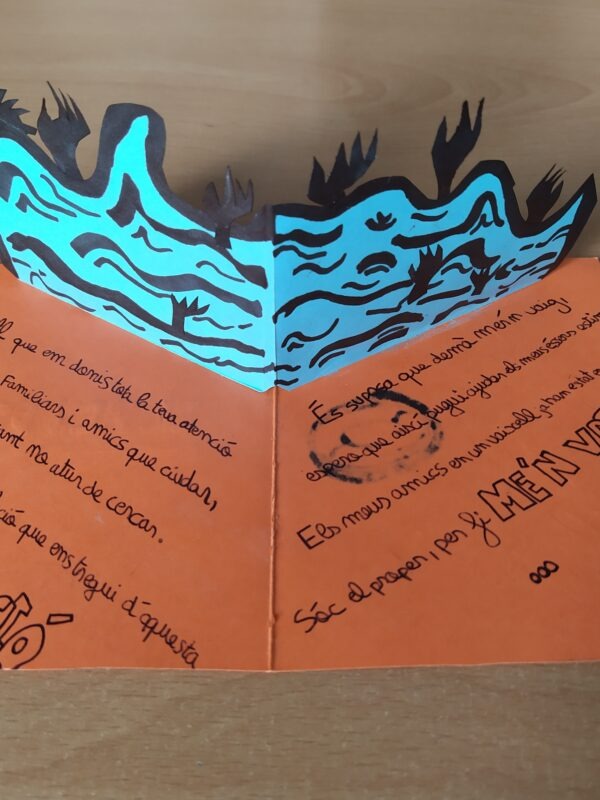 que em donis tota la teva atenció
Familiars i amics que ciudar,
no atur de cercar.
que ens tregui d'aquesta
És suposa que demà me'n vaig,
espero que així pugui ajudar els meus éssers
Els meus amics en un vaixell, ja han estat
Sóc el proper, per fi ME'N
ooo